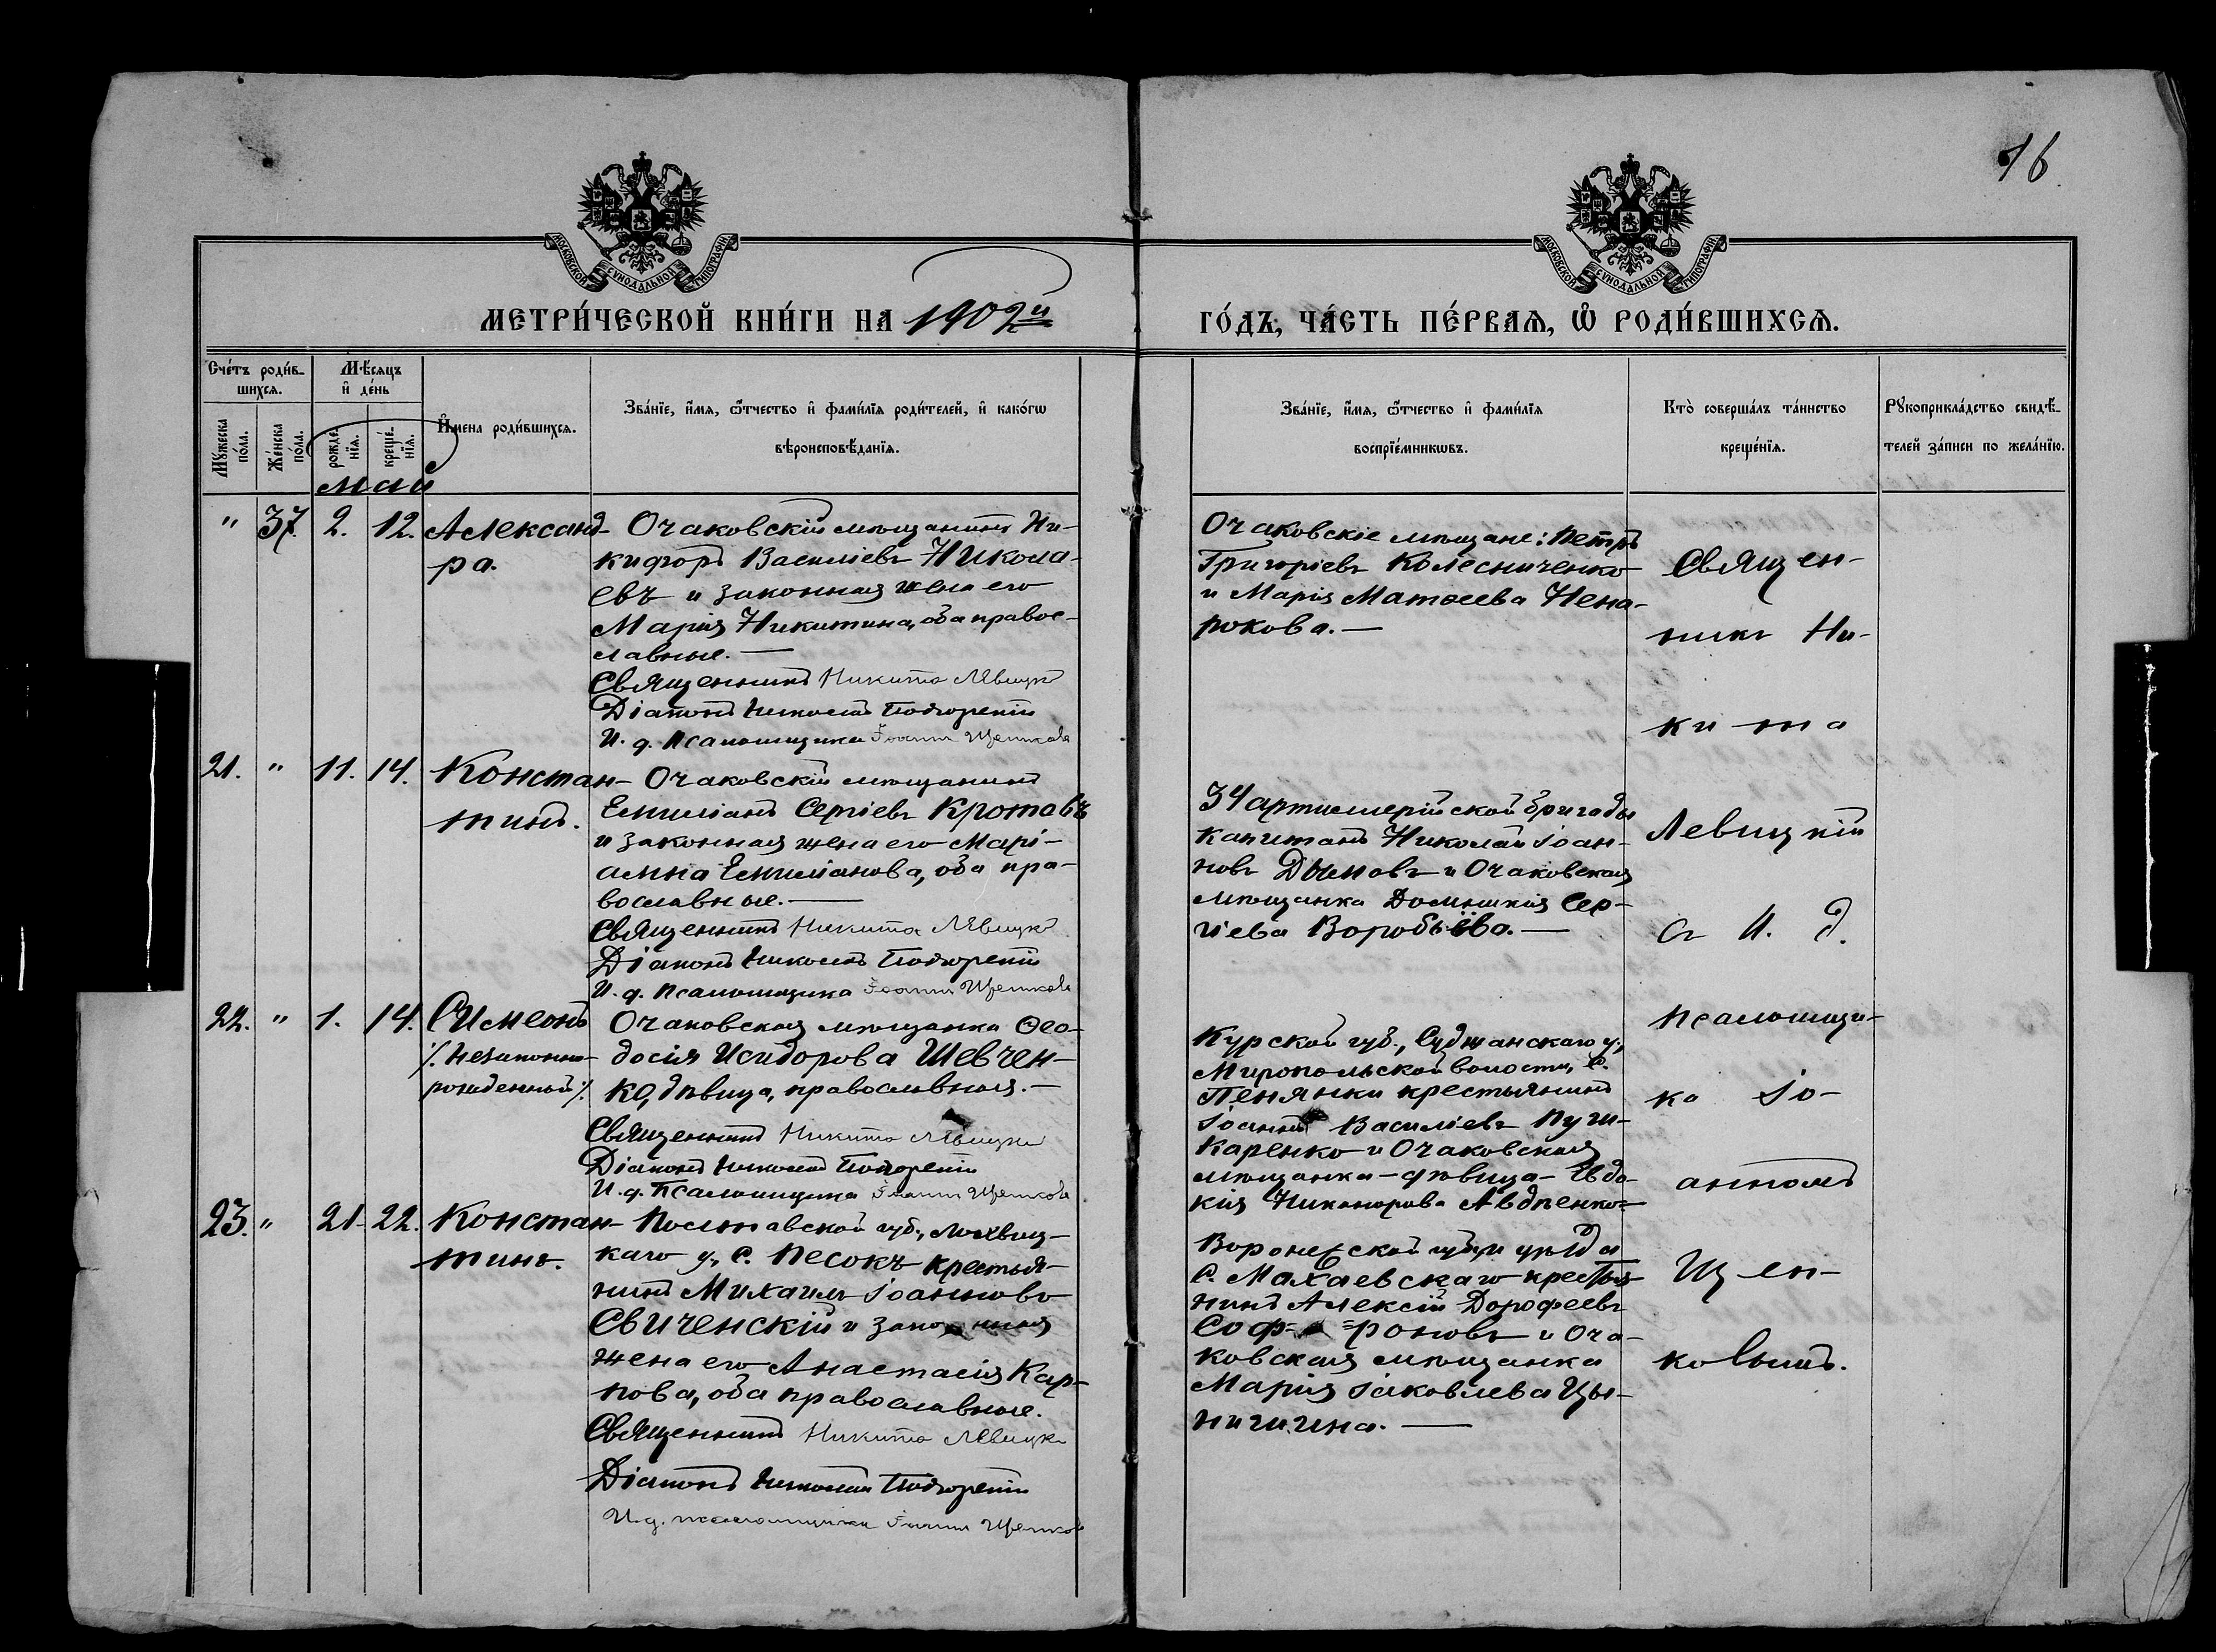 16
МОСКОВСКОЙ СѴНОДАЛЬНОЙ ТИПОГРАФІИ
МОСКОВСКОЙ СѴНОДАЛЬНОЙ ТИПОГРАФІИ
МЕТРИ́ЧЕСКОЙ КНИ́ГИ НА 1902й
ГО́ДЪ, ЧА́СТЬ ПЕ́РВАѦ, Ѽ РОДИ́ВШИХСѦ.
Сче́тъ роди́в-
шихсѧ.
Мѣ́сѧцъ
и҆ де́нь
Мꙋ́жеска
по́ла.
Же́нска
по́ла.
рожде́-
нїѧ.
креще́-
нїѧ.
И҆́мена роди́вшихсѧ.
Зва́нїе, и҆́мѧ, ѻ҆́тчество и҆ фами́лїѧ роди́телей, и҆ како́гѡ
вѣроисповѣ́данїѧ.
Зва́нїе, и҆́мѧ, ѻ҆́тчество и҆ фами́лїѧ
воспрїе́мникѡвъ.
Кто̀ соверша́лъ та́инство
креще́нїѧ.
Рꙋкоприкла́дство свидѣ́-
телей за́писи по жела́нїю.
май
" 37. 2. 12. Александ-
ра.
Очаковскій мѣщанинъ Ни-
кифоръ Василіевъ Никола-
евъ и законная жена его
Марія Никитина, оба правос-
лавные. —
Священникъ Никита Левицкій
Діаконъ Николай Подгорскій
И. д. Псаломщика Іоаннъ Щенковъ
Очаковскіе мѣщане: Петръ
Григоріевъ Колесниченко
и Марія Матѳеева Нена-
рокова. —
21. " 11. 14. Констан-
тинъ.
Очаковскій мѣщанинъ
Емиліанъ Сергіевъ Кротовъ
и законная жена его Марі-
амна Емиліанова, оба пра-
вославные. —
Священникъ Никита Левицкій
Діаконъ Николай Подгорскій
И. д. Псаломщика Іоаннъ Щенковъ
34 артиллерійской бригады
капитанъ Николай Іоан-
новъ Дымовъ и Очаковская
мѣщанка Домникія Сер-
гіева Воробьёва. —
22. " 1. 14. Симеонъ
/. незаконно-
рожденный /.
Очаковская мѣщанка Ѳео-
досія Исидорова Шевчен-
ко, дѣвица, православная. —
Священникъ Никита Левицкій
Діаконъ Николай Подгорскій
И. д. Псаломщика Іоаннъ Щенковъ
Курской губ., Суджанскаго у.,
Миропольской волости, с.
Пенянки крестьянинъ
Іоаннъ Василіевъ Пуш-
каренко и Очаковская
мѣщанка - дѣвица - Евдо-
кія Никанорова Авдѣенко
23. " 21. 22. Констан-
тинъ.
Полтавской губ., Лохвиц-
каго у., с. Песокъ крестья-
нинъ Михаилъ Іоанновъ
Свиченскій и законная
жена его Анастасія Кар-
пова, оба православные.
Священникъ Никита Левицкій
Діаконъ Николай Подгорскій
И. д. псаломщика Іоаннъ Щенковъ
Воронежской губ. и уѣзда
с. Махаевскаго крестья-
нинъ Алексій Дорофеевъ
Соф- роновъ и Оча-
ковская мѣщанка
Марія Іаковлева Цы-
Священ-
никъ Ни-
кита
Левицкій
съ И. д.
псаломщи-
ка Іо-
анномъ
Щен-
ковымъ.